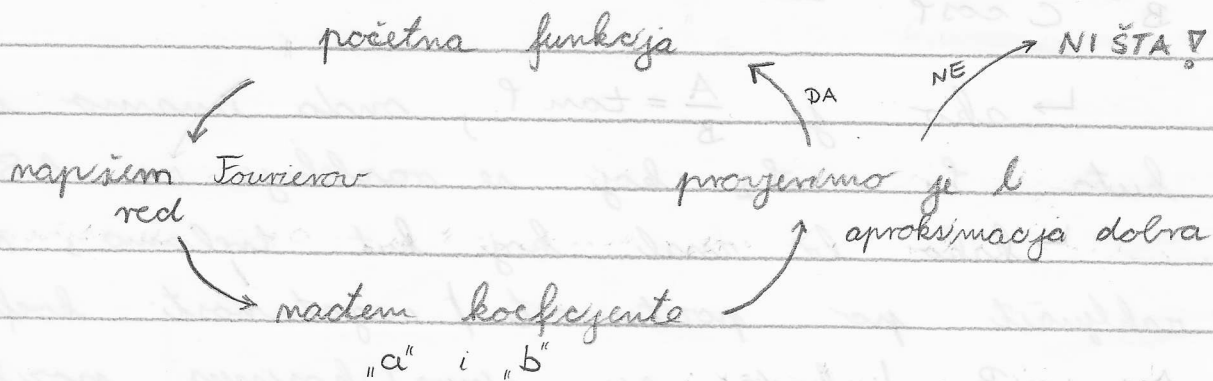 početna funkcija
NIŠTA!
DA
NE
napišem Fourierov
red
provjerimo je l
aproksimacja dobra
nađem koeficjente
„a“ i „b“